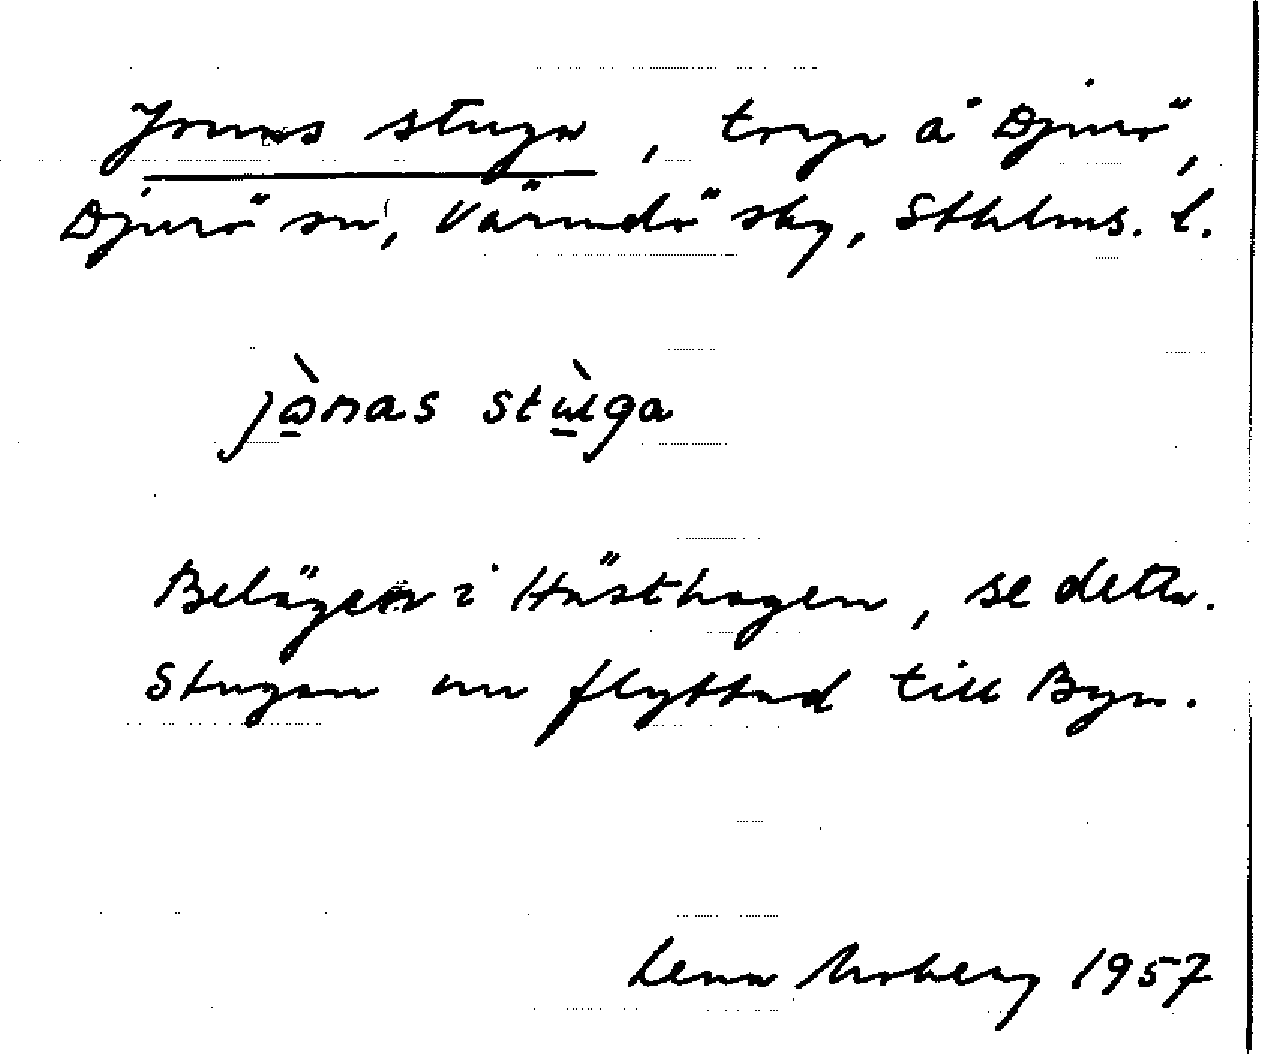 Jonas stuga, torp å Djurö,
Djurö sn, Värmdö sky, Sthlms. l.
jònas stùga
Belägen i Hästhagen, se detta.
Stugan nu flyttad till Byn.
Lena Moberg 1957